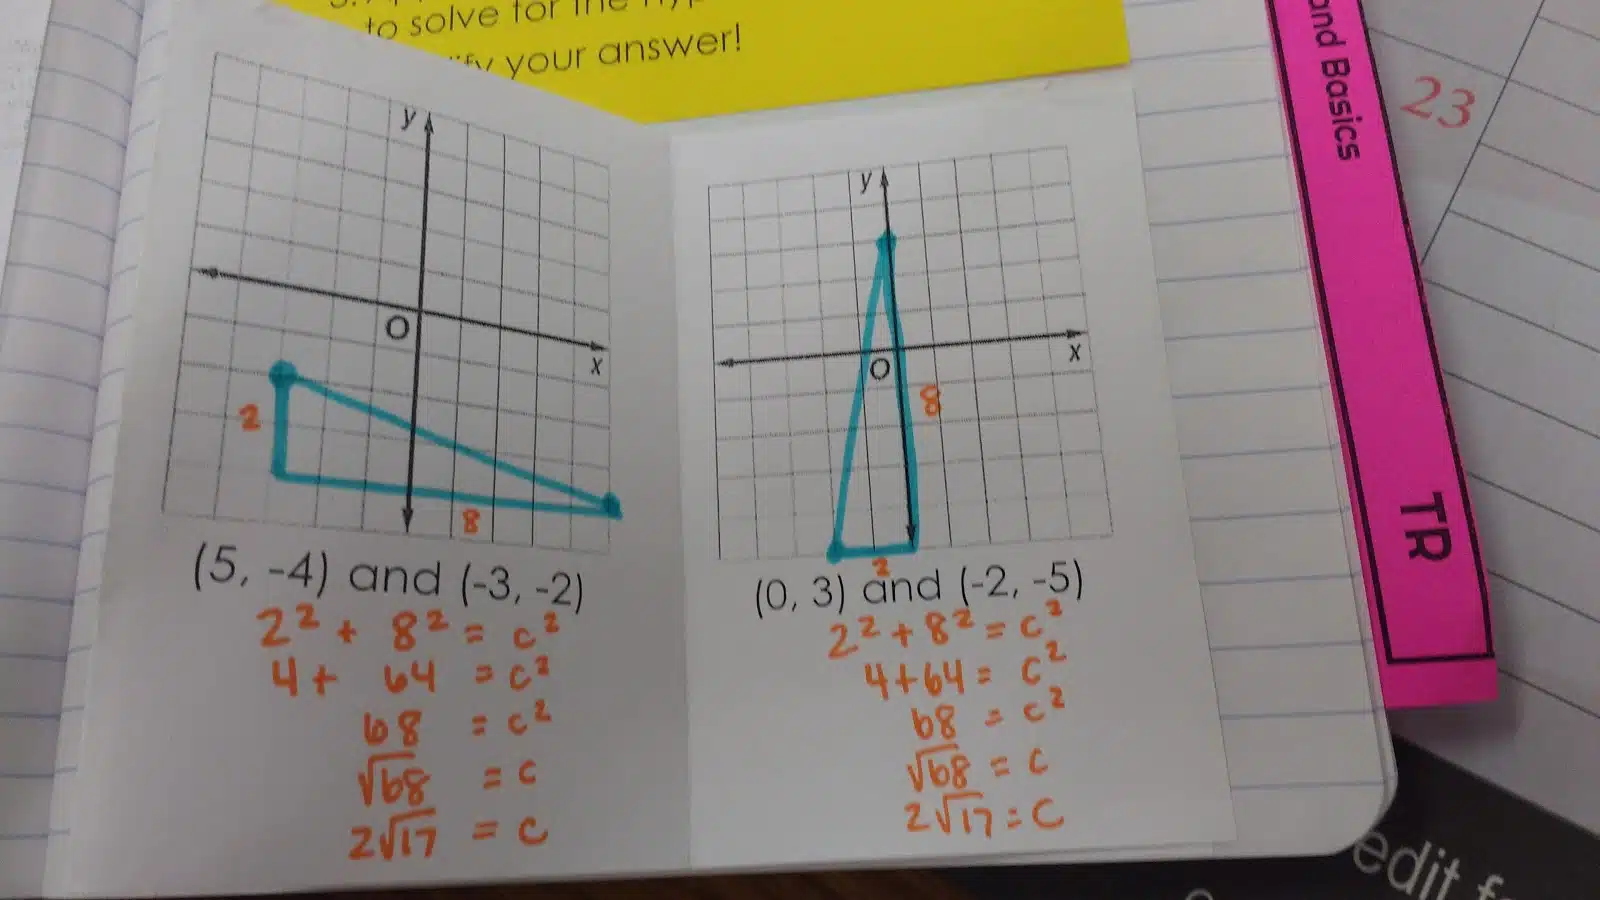 to solve for the
your answer!
y
O
x
2
8
(5, -4) and (-3, -2)
2² + 8² = c²
4 + 64 = c²
68 = c²
√68 = c
2√17 = c
y
O
x
8
2
(0, 3) and (-2, -5)
2² + 8² = c²
4 + 64 = c²
68 = c²
√68 = c
2√17 = c
and Basics
TR
23
edit